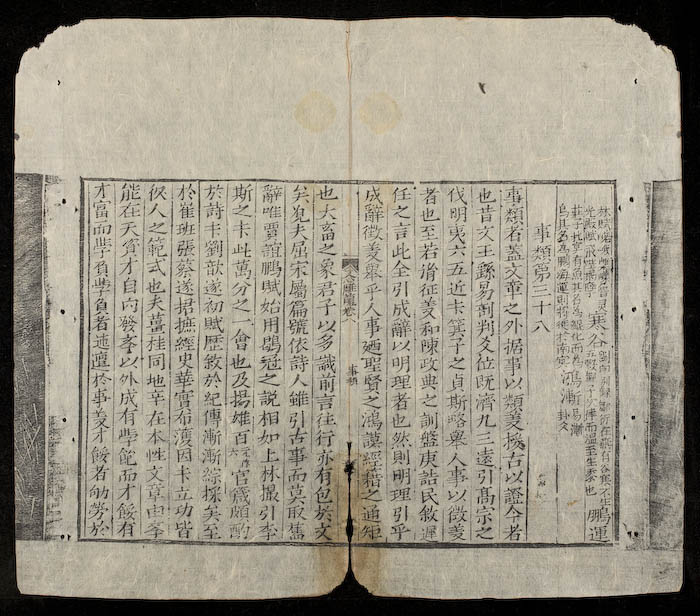 寒谷 劉向別錄鄒衍在燕有谷寒不生五穀鄒子吹律而溫至生黍也 鵬運
莊子北冥有魚其名為鯤化而為鳥其名為鵬海運則將徙於南冥 鴻漸 易漸卦爻
事類第三十八
事類者蓋文章之外据事以類義援古以證今者
也昔文王繇易剖判爻位既濟九三遠引髙宗之
伐明夷六五近書箕子之貞斯略舉人事以徵義
者也至若胤征羲和陳政典之訓盤庚誥民敘遲
任之言此全引成辭以明理者也然則明理引乎
成辭徵義舉乎人事廼聖賢之鴻謨經籍之通矩
文心雕龍卷八 事類
也大畜之象君子以多識前言往行亦有包於文
矣觀夫屈宋屬篇號依詩人雖引古事而莫取舊
辭唯賈誼鵬賦始用鶡冠之說相如上林撮引李
斯之書此萬分之一會也及揚雄百元作六官箴頗酌
於詩書劉歆遂初賦歷敘於紀傳漸漸綜採矣至
於崔班張蔡遂捃摭經史華實布濩因書立功皆
後人之範式也夫薑桂同地辛在本性文章由學
能在天資才自內發學以外成有學飽而才餒有
才富而學貧學貧者迍邅於事義才餒者劬勞於